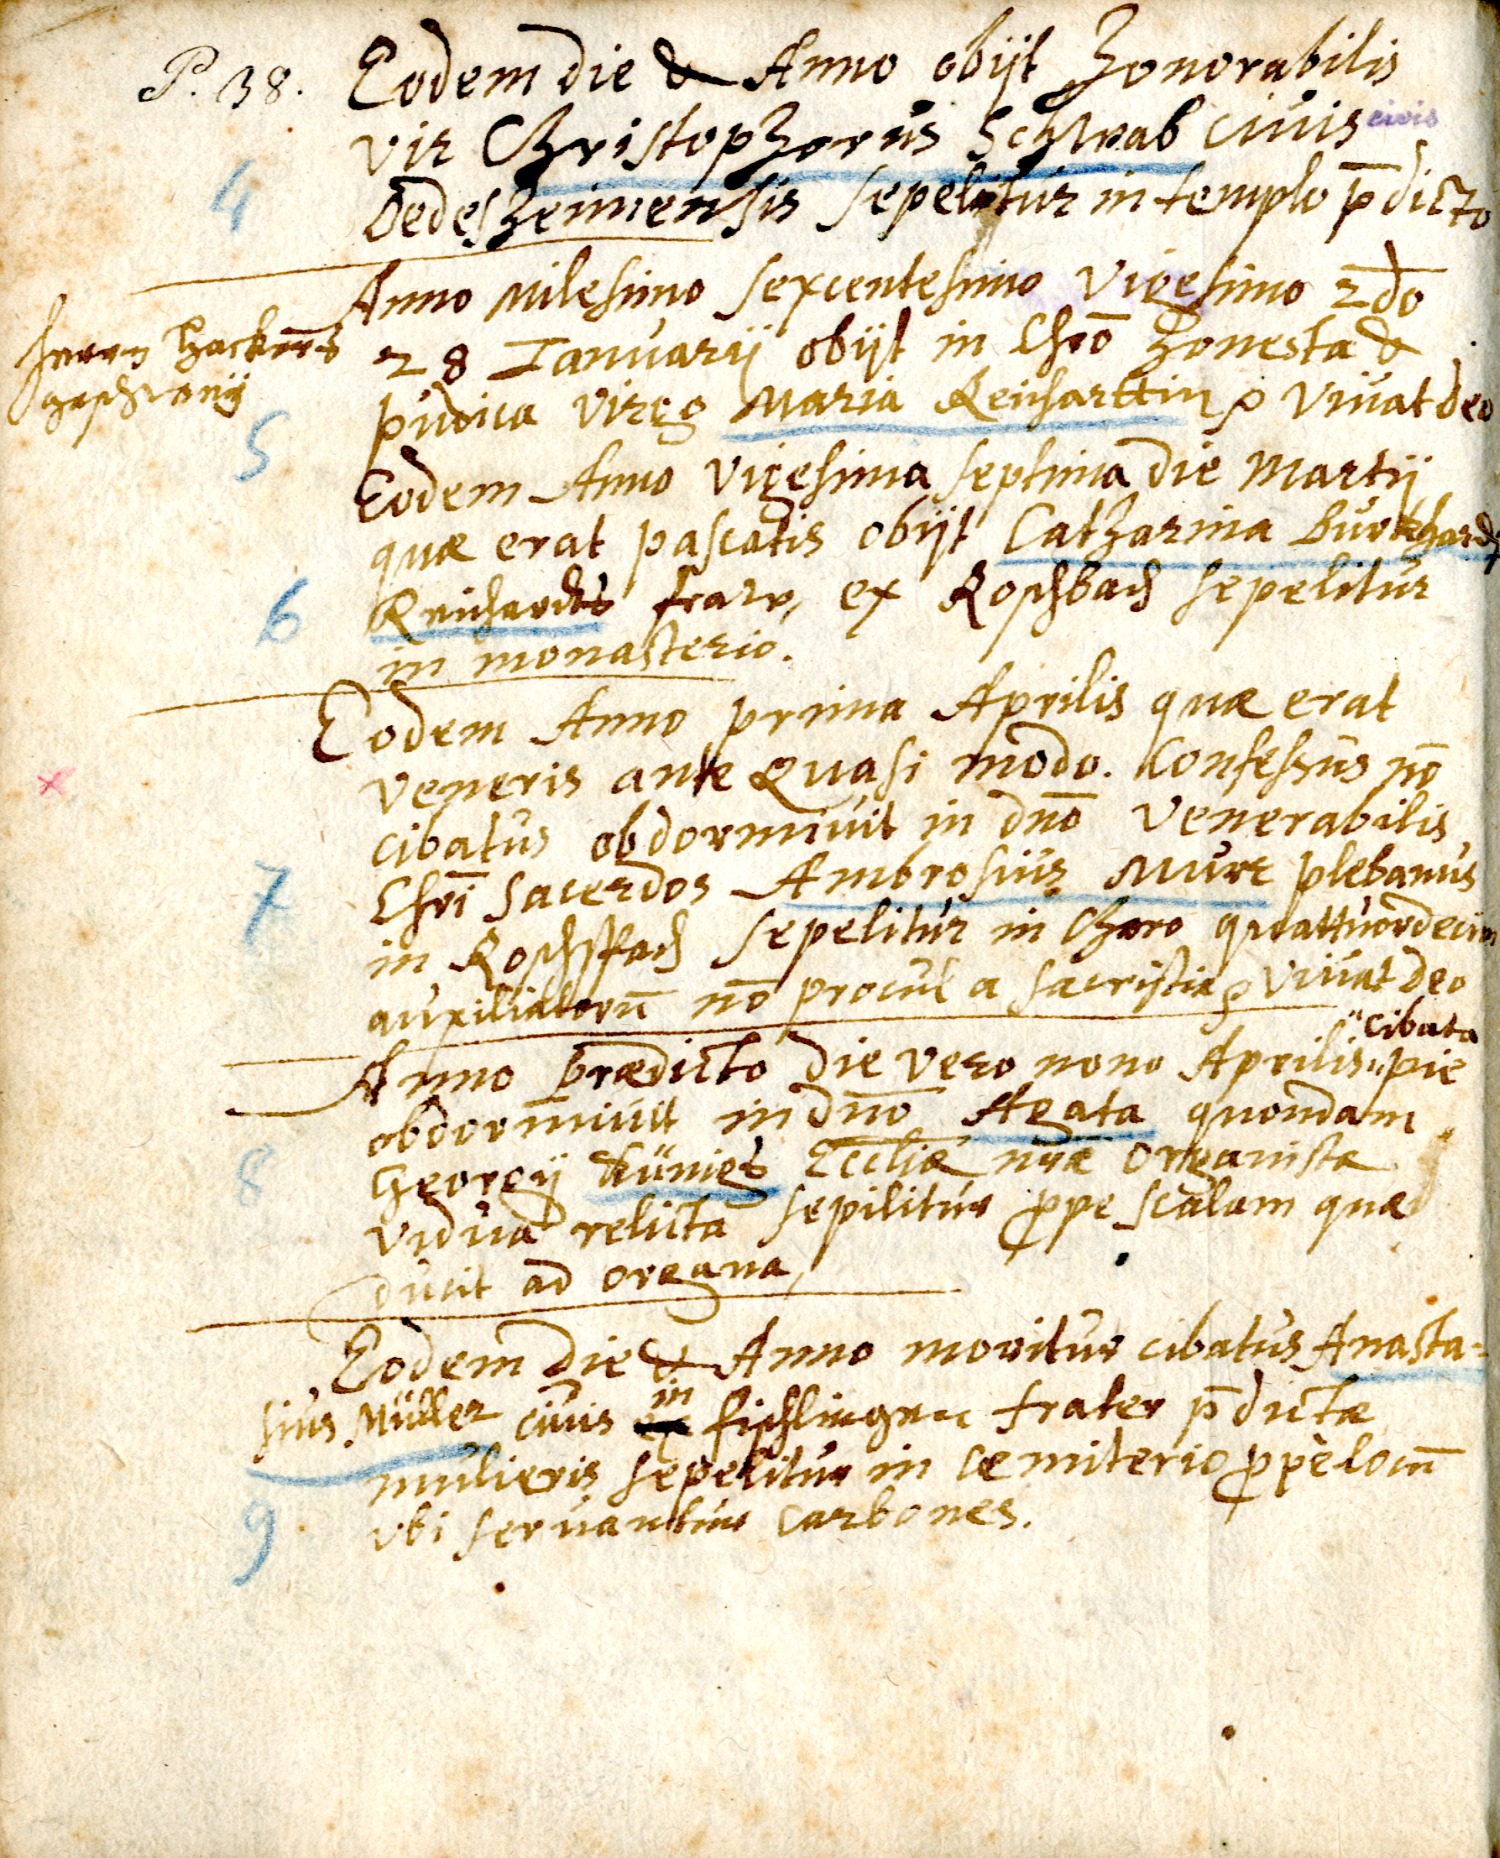 P. 38. Eodem die & Anno obijt Honorabilis
vir Christophorus Schwab civis civis
4 Oedesheimensis sepelitur in templo p̄dicto
Anno Milesimo sexcentesimo Vigesimo 2do
28 Januarij obijt in Chrō honesta &
pudica virgo Maria Reicharttin vivat deo
5
Eodem Anno vigesima septima die Martij
quæ erat pascatis obijt Catharina Burkhardt
6 Reichardts fraw, ex Roschbach sepelitur
in monasterio.
Eodem Anno prima Aprilis quæ erat
x veneris ante Quasi modo. Confessus nō
cibatus obdormivit in dnō Venerabilis
7 Chrī sacerdos Ambrosius Murr plebanus
in Roschpach sepelitur in choro quattuordecim
auxiliatorū nō procul a sacristia vivat deo
Anno prædicto die vero nono Aprilis "cibata "pie
obdorm̄ivit in dnō Agata quondam
8 Georgij Künigs Eccliæ nr̄æ organistæ
vidua relicta sepilitur ꝓpe scalam quæ
ducit ad organa,
Eodem die & Anno moritur cibatus Anasta=
sius Müller civis in fischlingen frater p̄dictæ
mulieris sepelitur in cæmiterio ꝓpe locū
9 vbi servantur carbones.